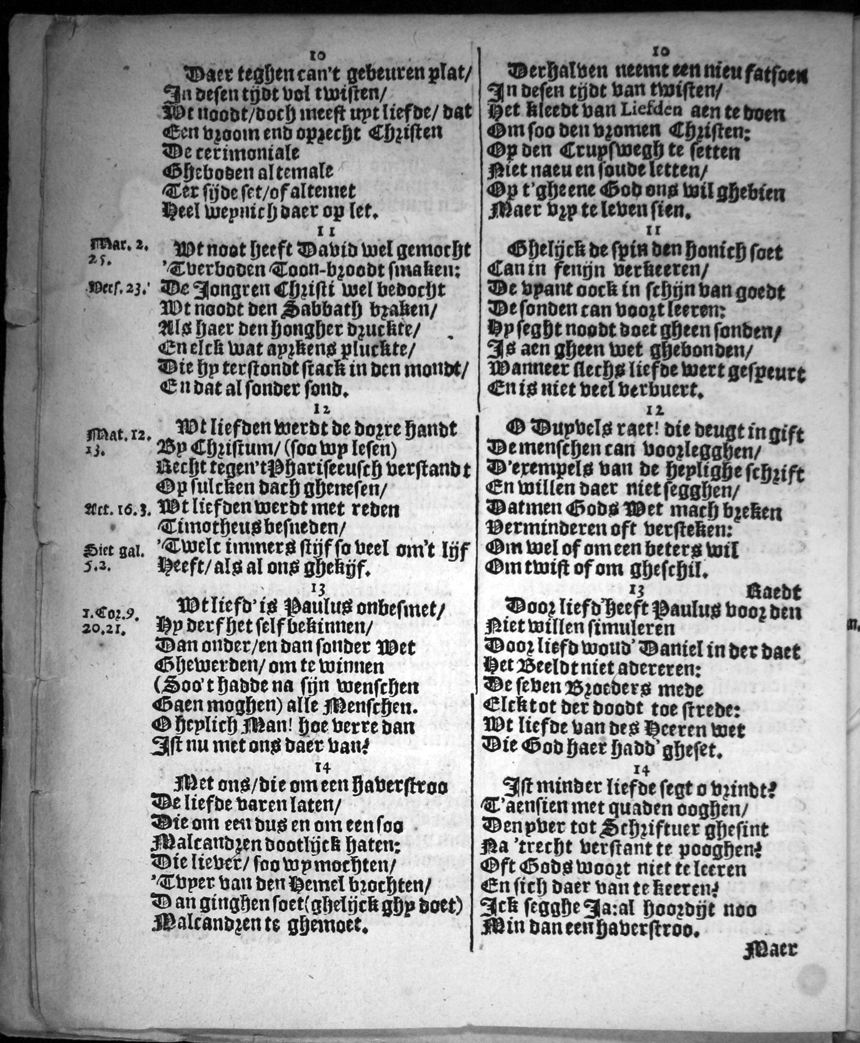 10
Daer teghen can't gebeuren plat/
In desen tijdt vol twisten/
Wt noodt/doch meest uyt liefde/ dat
Een vroom end oprecht Christen
De cerimoniale
Gheboden altemale
Ter sijde set/of altemet
Heel weynich daer op let.
11
Mar. 2.
25.
Wt noot heeft David wel gemocht
'Tverboden Toon-broodt smaken:
Vers. 23.
De Jongren Christi wel bedocht
Wt noodt den Sabbath braken/
Als haer den hongher druckte/
En elck wat ayrkens pluckte/
Die hy terstondt stack in den mondt/
En dat al sonder sond.
12
Mat. 12.
13.
Wt liefden werdt de dorre handt
By Christum/ (soo wy lesen)
Recht tegen't Phariseeusch verstandt
Op sulcken dach ghenesen/
Act. 16.3.
Wt liefden werdt met reden
Timotheus besneden/
Siet gal.
5.2.
'Twelc immers stijf so veel om't lijf
Heeft/ als al ons ghekijf.
13
1.Cor.9.
20,21.
Wt liefd' is Paulus onbesmet/
Hy derf het self bekinnen/
Dan onder/en dan sonder Wet
Ghewerden/ om te winnen
(Soo't hadde na sijn wenschen
Gaen moghen) alle Menschen.
O heylich Man! hoe verre dan
Ist nu met ons daer van?
14
Met ons/die om een haverstroo
De liefde varen laten/
Die om een dus en om een soo
Malcandren dootlijck haten:
Die liever/ soo wy mochten/
'Tvyer van den Hemel brochten/
Dan ginghen soet(ghelijck ghy doet)
Malcandren te ghemoet.
10
Derhalven neemt een nieu fatsoen
In desen tijdt van twisten/
Het kleedt van Liefden aen te doen
Om soo den vromen Christen:
Op den Cruyswegh te setten
Niet naeu en soude letten/
Op t'gheene God ons wil ghebien
Maer vry te leven sien.
11
Ghelijck de spin den honich soet
Can in fenijn verkeeren/
De vyant oock in schijn van goedt
De sonden can voort leeren:
Hy seght noodt doet gheen sonden/
Is aen gheen wet ghebonden/
Wanneer slechs liefde wert gespeurt
En is niet veel verbuert.
12
O Duyvels raet! die deugt in gift
De menschen can voorlegghen/
D'exempels van de heylighe schrift
En willen daer niet segghen/
Datmen Gods Wet mach breken
Verminderen oft versteken:
Om wel of om een beters wil
Om twist of om gheschil.
13
Raedt
Door liefd' heeft Paulus voor den
Niet willen simuleren
Door liefd woud' Daniel in der daet
Het Beeldt niet adereren:
De seven Broeders mede
Elck tot der doodt toe strede:
Wt liefde van des Heeren wet
Die God haer hadd' gheset.
14
Ist minder liefde segt o vrindt?
T'aensien met quaden ooghen/
Den yver tot Schriftuer ghesint
Na 'trecht verstant te pooghen?
Oft Gods woort niet te leeren
En sich daer van te keeren?
Ick segghe Ja: al hoordijt noo
Min dan een haverstroo.
Maer